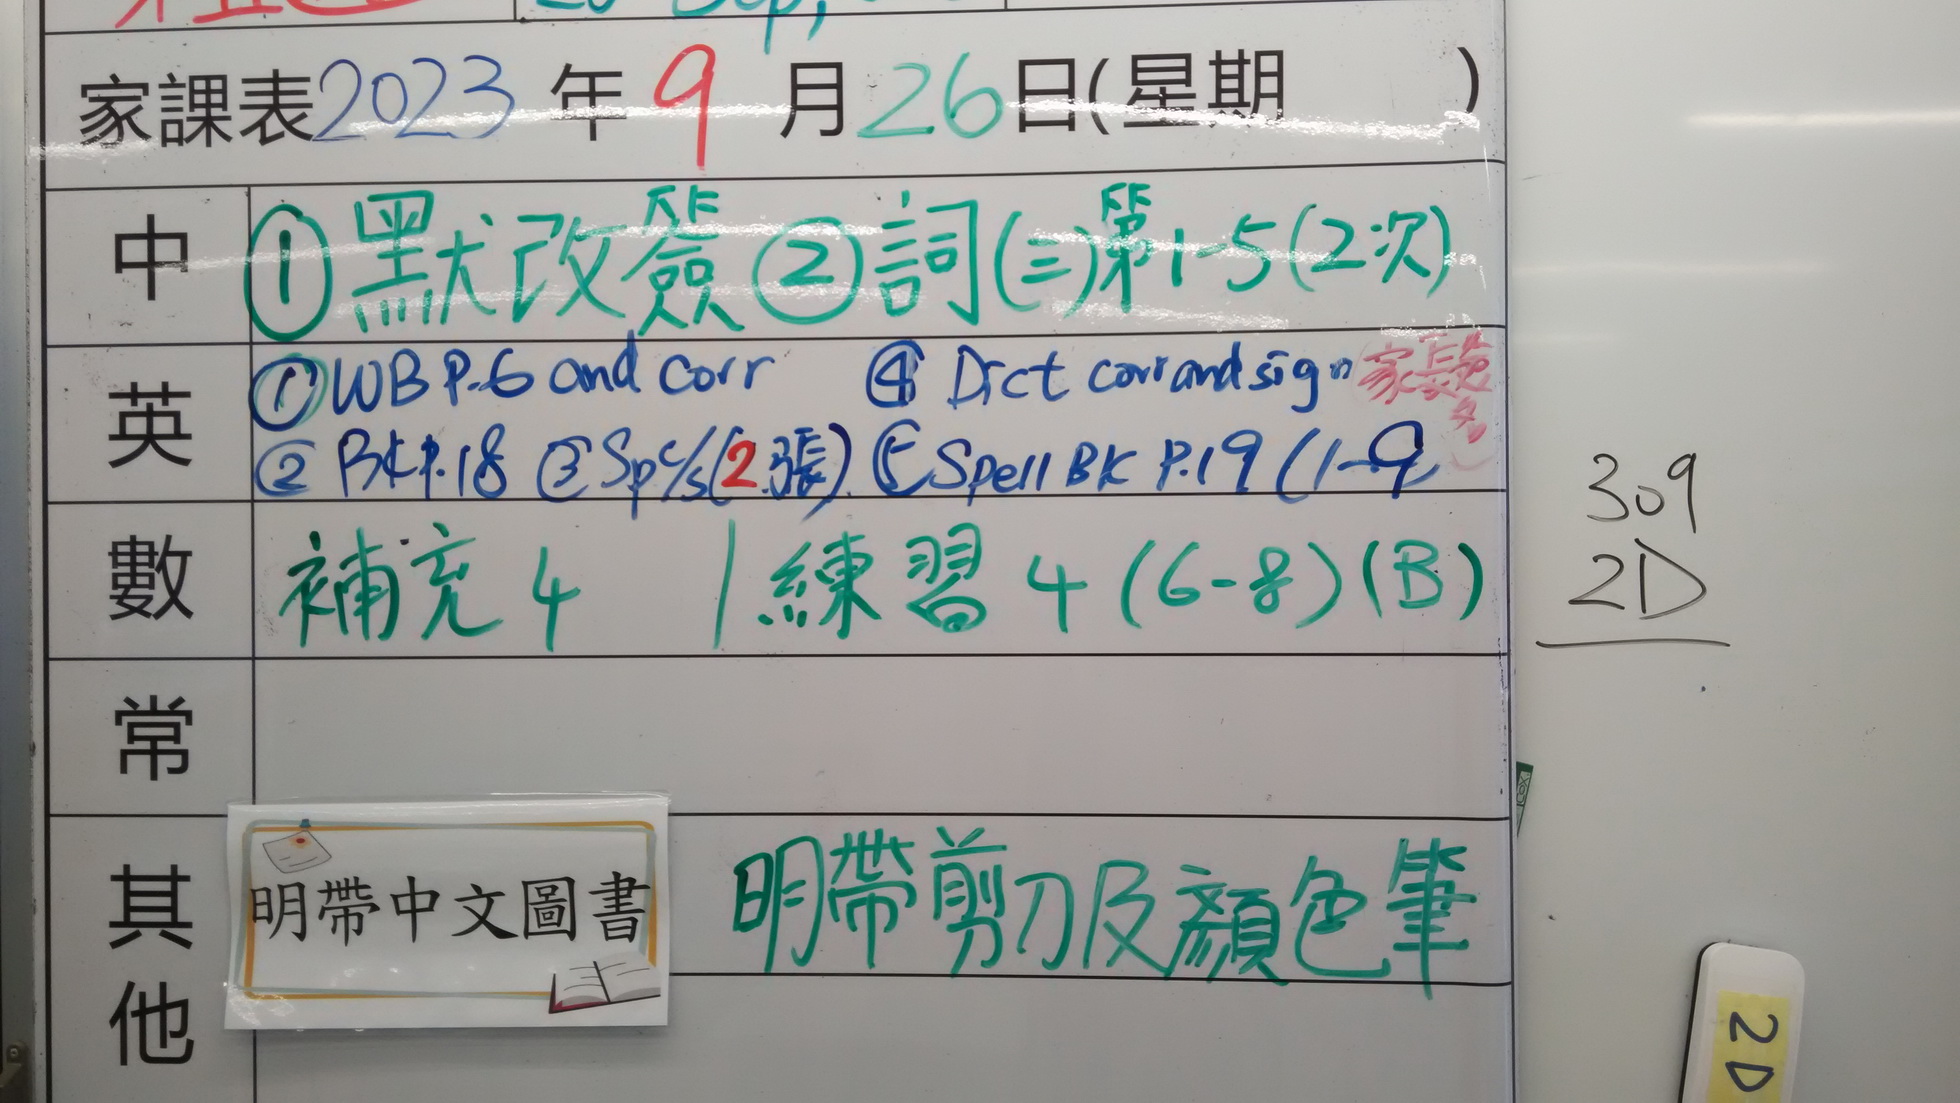 家課表2023年9月26日(星期 )
中 ①默改簽 ②詞(三)第1-5(2次)
英 ①WB P.6 and Corr ④ Dict corr and sign 家長簽名
② BK P.18 ③ Sp c/s (2張) ⑤ Spell BK P.19 (1-9)
數 補充4 | 練習4 (6-8) (B)
常
其他 明帶中文圖書 明帶剪刀及顏色筆
309
2D
2D